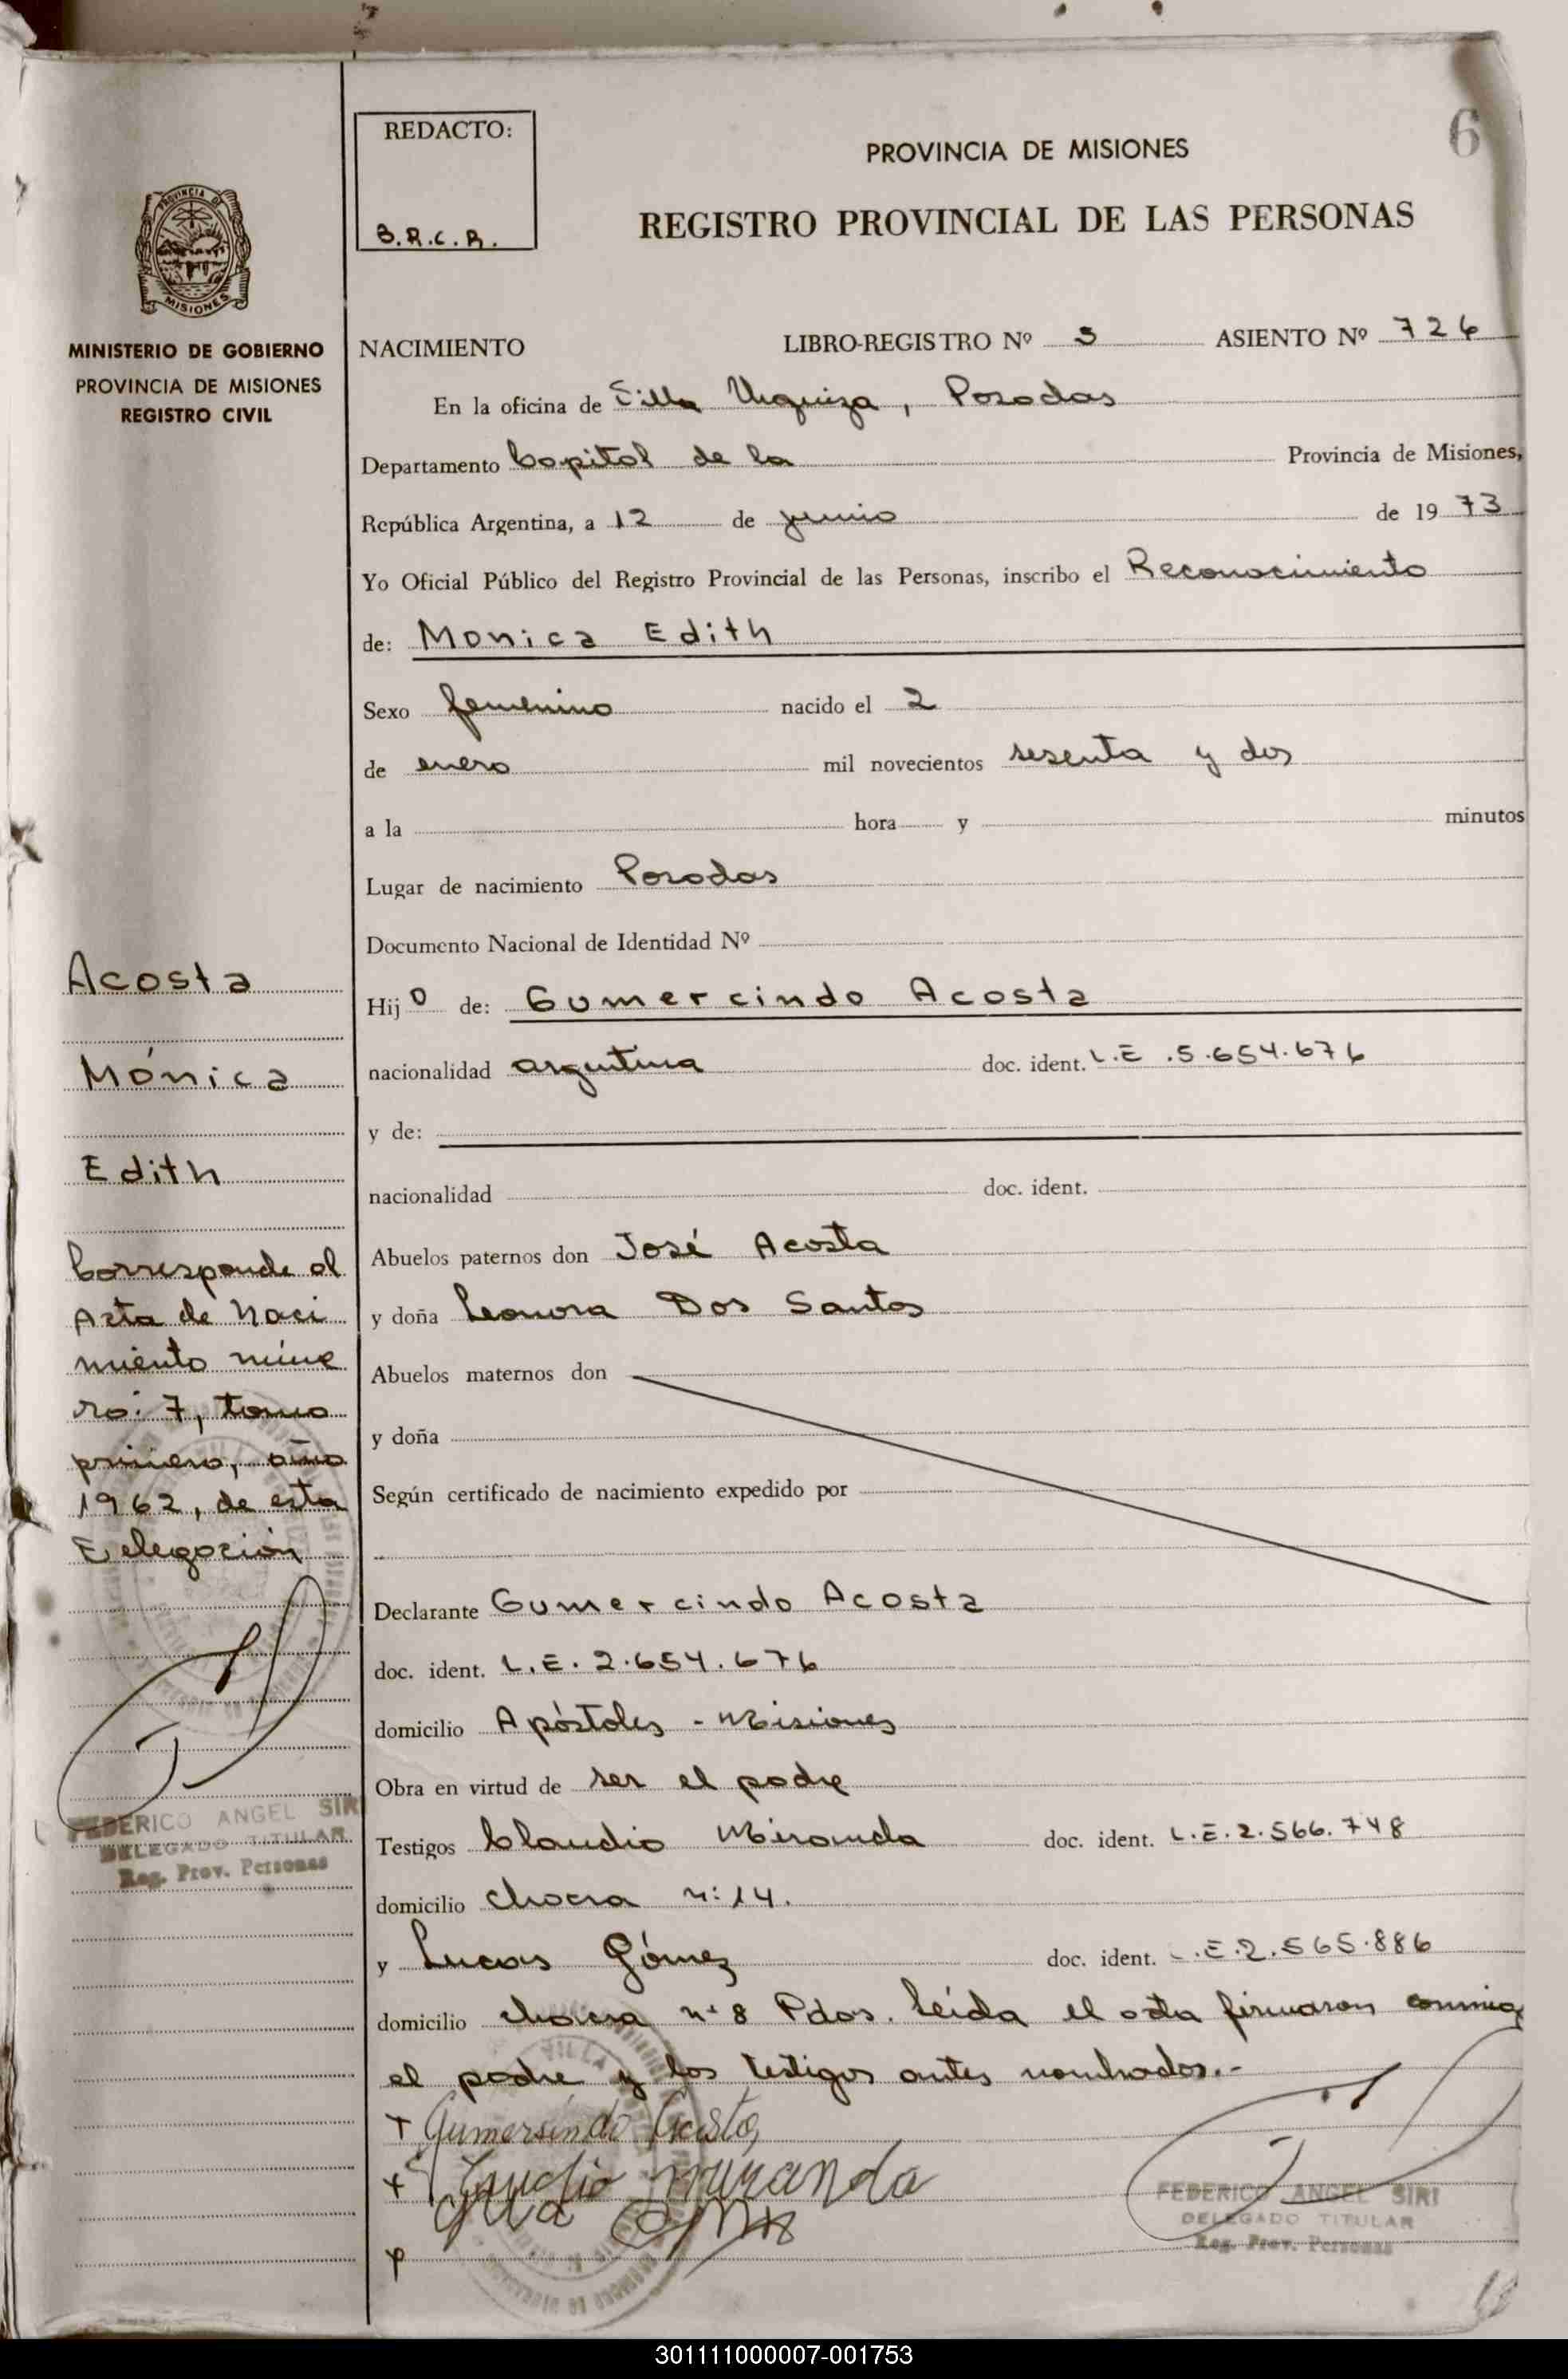 6
REDACTO:
B.R.C.R.
PROVINCIA DE MISIONES
REGISTRO PROVINCIAL DE LAS PERSONAS
PROVINCIA DE
MISIONES
MINISTERIO DE GOBIERNO
PROVINCIA DE MISIONES
REGISTRO CIVIL
NACIMIENTO LIBRO-REGISTRO Nº 3 ASIENTO Nº 726
En la oficina de Villa Urquiza, Posadas
Departamento Capital de la Provincia de Misiones,
República Argentina, a 12 de junio de 1973
Yo Oficial Público del Registro Provincial de las Personas, inscribo el Reconocimiento
de: Monica Edith
Sexo femenino nacido el 2
de enero mil novecientos sesenta y dos
a la hora y minutos
Lugar de nacimiento Posadas
Documento Nacional de Identidad Nº
Hijo de: Gumercindo Acosta
nacionalidad argentina doc. ident. L.E.5.654.676
y de:
nacionalidad doc. ident.
Abuelos paternos don José Acosta
y doña Leonora Dos Santos
Abuelos maternos don
y doña
Según certificado de nacimiento expedido por
Declarante Gumercindo Acosta
doc. ident. L.E.2.654.676
domicilio Apóstoles - Misiones
Obra en virtud de ser el padre
Testigos Claudio Miranda doc. ident. L.E.2.566.748
domicilio chacra n: 14.
y Lucas Gómez doc. ident. L.E.2.565.886
domicilio chacra n: 8 Pdas. Leída el acta firmaron conmigo
el padre y los testigos antes nombrados.-
Gumersindo Acosta
Claudio Miranda
FEDERICO ANGEL SIRI
DELEGADO TITULAR
Reg. Prov. Personas
Acosta
Mónica
Edith
Corresponde al
Acta de Naci
miento núme
ro: 7, tomo
primero, año
1962, de esta
Delegación
FEDERICO ANGEL SIRI
DELEGADO TITULAR
Reg. Prov. Personas
301111000007-001753